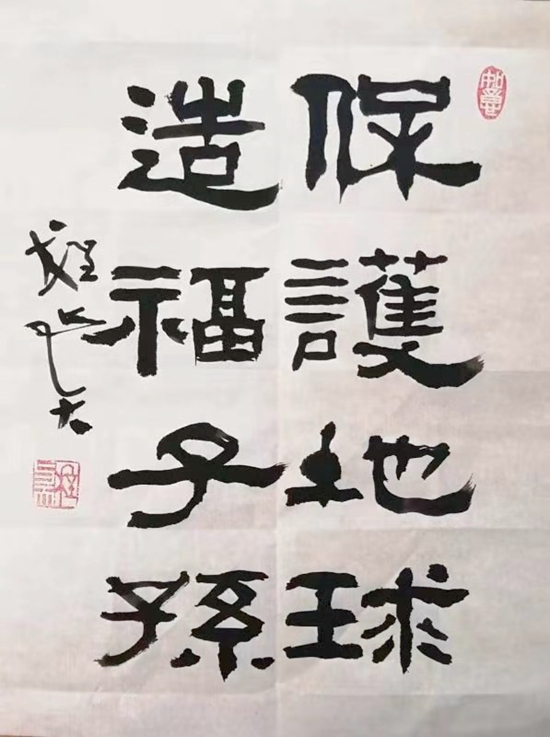 保護地球
造福子孫